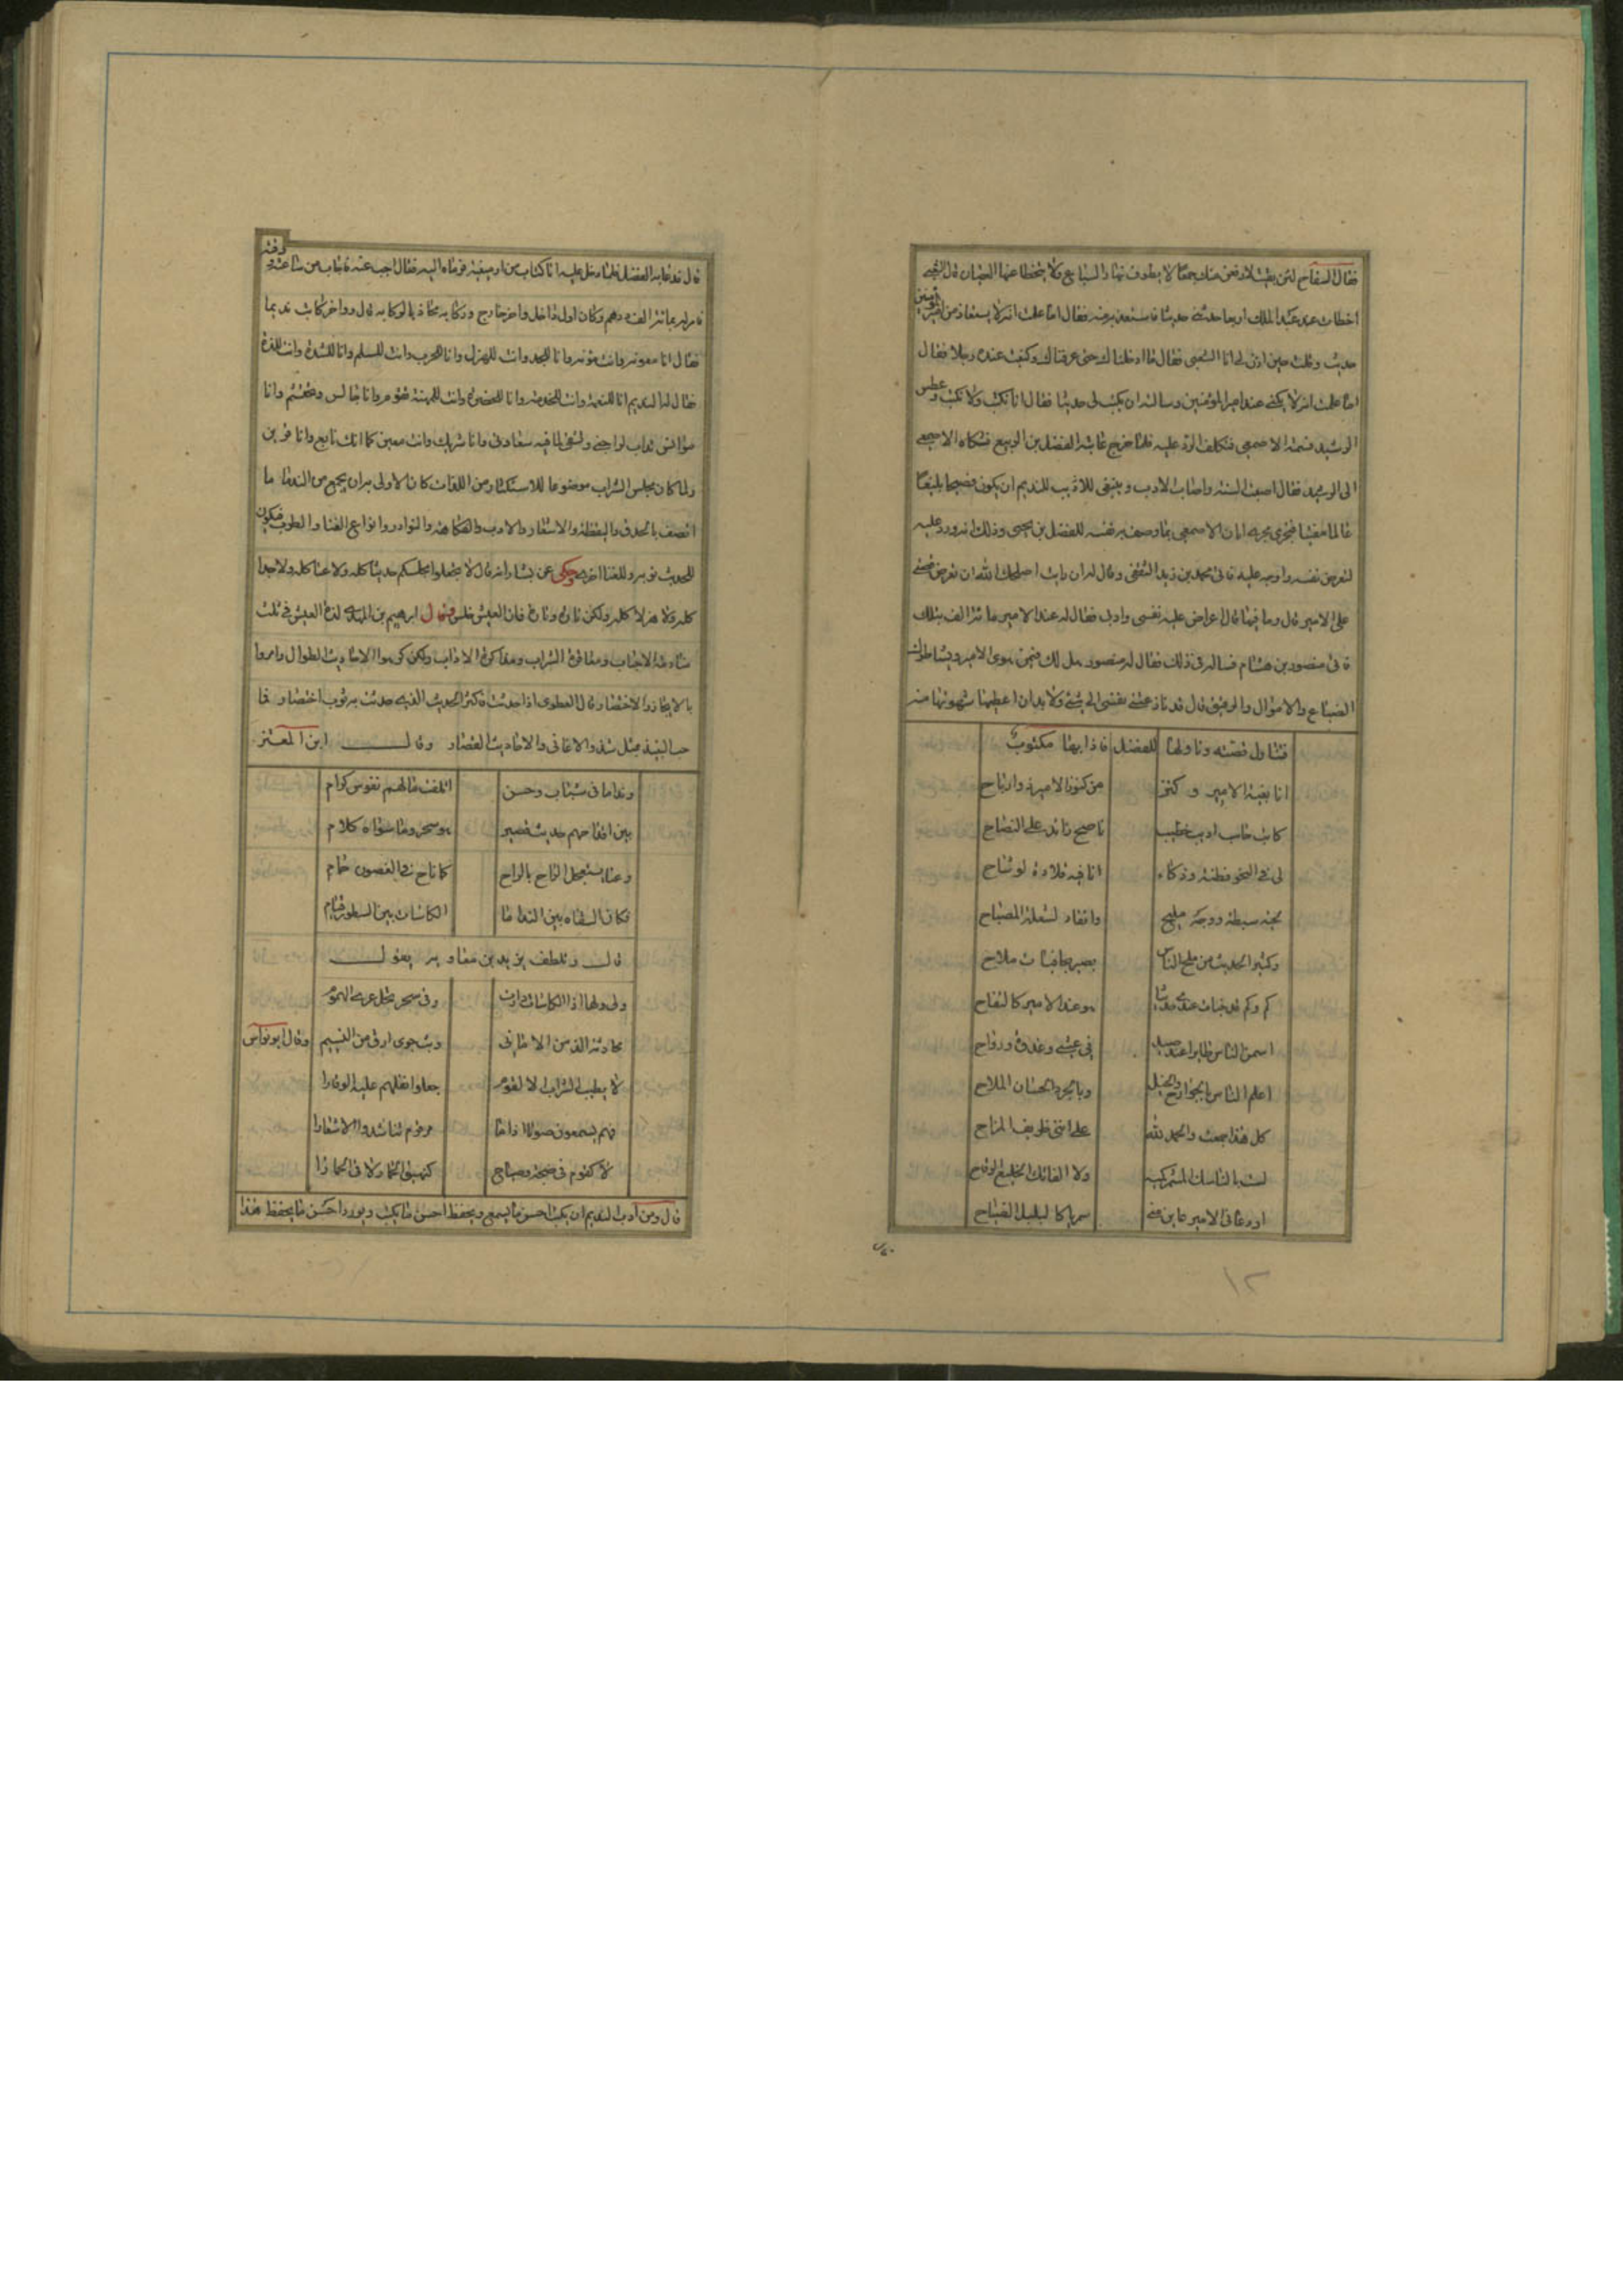 فقال السفاح لئن بقيت لارفعن منك بضعا لا يطوف بها السباع ولا يتخطاها العقبان قال الشعبي
اخطات عند عبد الملك اربعا حدثني حديثا فاستعدته منه فقال اما علمت انه لا يستعاد من امير المؤمنين
حديث وقلت حين اذن لي انا الشعبي فقال ما ادخلناك حتى عرفناك وكنيت عنده رجلا فقال
اما علمت انه لا يكنى عند امير المؤمنين وسالته ان يكتبني حديثا فقال انا نكتب ولا نكتب وعطس
الرشيد فشمته الاصمعي فتكلف الرد عليه فلما خرج عاتبه الفضل بن الربيع فشكاه الاصمعي
الى الرشيد فقال اصبت السنة واصاب الادب وينبغي للاديب للنديم ان يكون فصيحا بليغا
عالما مفتيا فيجري مجرى ابان الاصمعي بما وصف به نفسه للفضل بن يحيى وذلك انه ورد عليه
ليعرض نفسه وادبه عليه فاتى محمد بن زيد الثقفي وقال له ان رايت اصلحك الله ان تعرض قصتي
على الامير قال وما فيها قال اعراض عليه نفسي وادبي فقال له عند الامير مائة الف بمثلك
فاتى منصور بن هشام فساله في ذلك فقال له منصور هل لك فيمن يهوى الامير
الضياع والاموال والرقيق قال قد نازعتني نفسي الى شيء ولا بد ان اعطيها شهوتها منه
فتناول قصته وناولها للفضل فاذا بها مكتوب
انا بغية الامير وكنز من كنوز الامير ذو ارباح
كاتب حاسب اديب خطيب ناصح زائد على النصاح
لي في النحو فطنة وذكاء انا فيه قلادة لوشاح
لحية سبطة ووجه مليح واتقاد لشعلة المصباح
وكثير الحديث من ملح الناس بصير بخافيات ملاح
كم وكم قد خبات عندي حديثا هو عند الامير كالتفاح
ايمن الناس طايرا عند صيد في عشي وغدوة ورواح
اعلم الناس بالجوارح والخيل وبالخرد الحسان الملاح
كل هذا جمعت والحمد لله على انني ظريف المزاح
لست بالناسك المشمر كميه ولا الفاتك الخليع الوقاح
ان دعاني الامير عاين مني سمريا كالبلبل الصياح
١٢
قال قد فدعا به الفضل فلما دخل عليه اتى كتاب من ارمينية فرماه اليه فقال اجب عنه فاجاب من ساعته
فامر له بمائة الف درهم وكان اول داخل واخر خارج وركابه محاذ بالركابه قال وواخر كاتب نديما
فقال انا معونة وانت مؤنة وانا للجد وانت للهزل وانا للحرب وانت للسلم وانا للشدة وانت للذة
فقال له النديم انا للنعمة وانت للخدمة وانا للحضوة وانت للمهنة تقوم وانا جالس وتحتشم وانا
مؤانس تداب لراحتي وتشقى لما فيه سعادتي وانا شريك وانت معين كما انك تابع وانا قرين
ولما كان مجلس الشراب موضوعا للاستكثار من اللذات كان الاولى به ان يجمع من الندما ما
اتصف بالحذق واليقظة والاشعار والادب والفكاهة والنوادر وانواع الغنا والطرب فيكون
للحديث نوبة وللغنا اخرى وحكي عن بشار انه قال لا تجعلوا مجلسكم حديثا كله ولا غنا كله ولا جدا
كله ولا هزلا كله ولكن تارة وتارة فان العيش خلس وقال ابرهيم بن المهدي لذة العيش في ثلث
منادمة الاحباب ومعاقرة الشراب ومذاكرة الاداب ولكن كرهوا الاحاديث الطوال وامروا
بالايجاز والاختصار وقال العطوي اذا حدثت فاكس الحديث الذي حدثت به ثوب اختصار فما
حث النبيذ بمثل شدو الاغاني والاحاديث القصار وقال ابن المعتز
وندامى في شباب وحسن اتلفت مالهم نفوس كرام
بين اقداحهم حديث قصير هو سحر وما سواه كلام
وغنا يستعجل الراح بالراح كما ناح في الغصون حمام
فكان السقاة بين الندامى الفات بين السطور قيام
قال وتلطف يزيد بن معاوية بقول
ولي ولها اذا الكاسات دارت وفى سحر يحل عرى الهموم
محادثة الذ من الاماني وبث جوى ارق من النسيم وقال ابو نواس
لا يطيب الشراب الا لقوم جعلوا نقلهم عليه الوقارا
فهم يسمعون صوتا اذا ما هزهم تناشدوا الاشعارا
لا كقوم في ضجة وصياح كنهيق الحمار لاقى الحمارا
قال ومن ادب النديم ان يكتب احسن ما يسمع ويحفظ احسن ما يكتب ويورد احسن ما يحفظ هذا